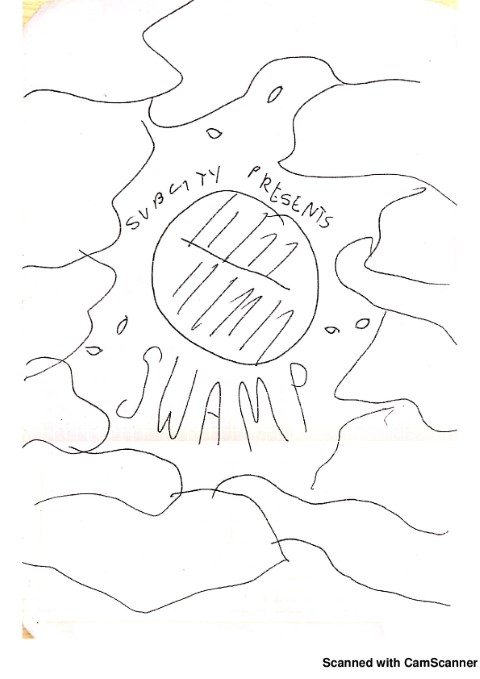 SUBCITY PRESENTS
SWAMP
Scanned with CamScanner